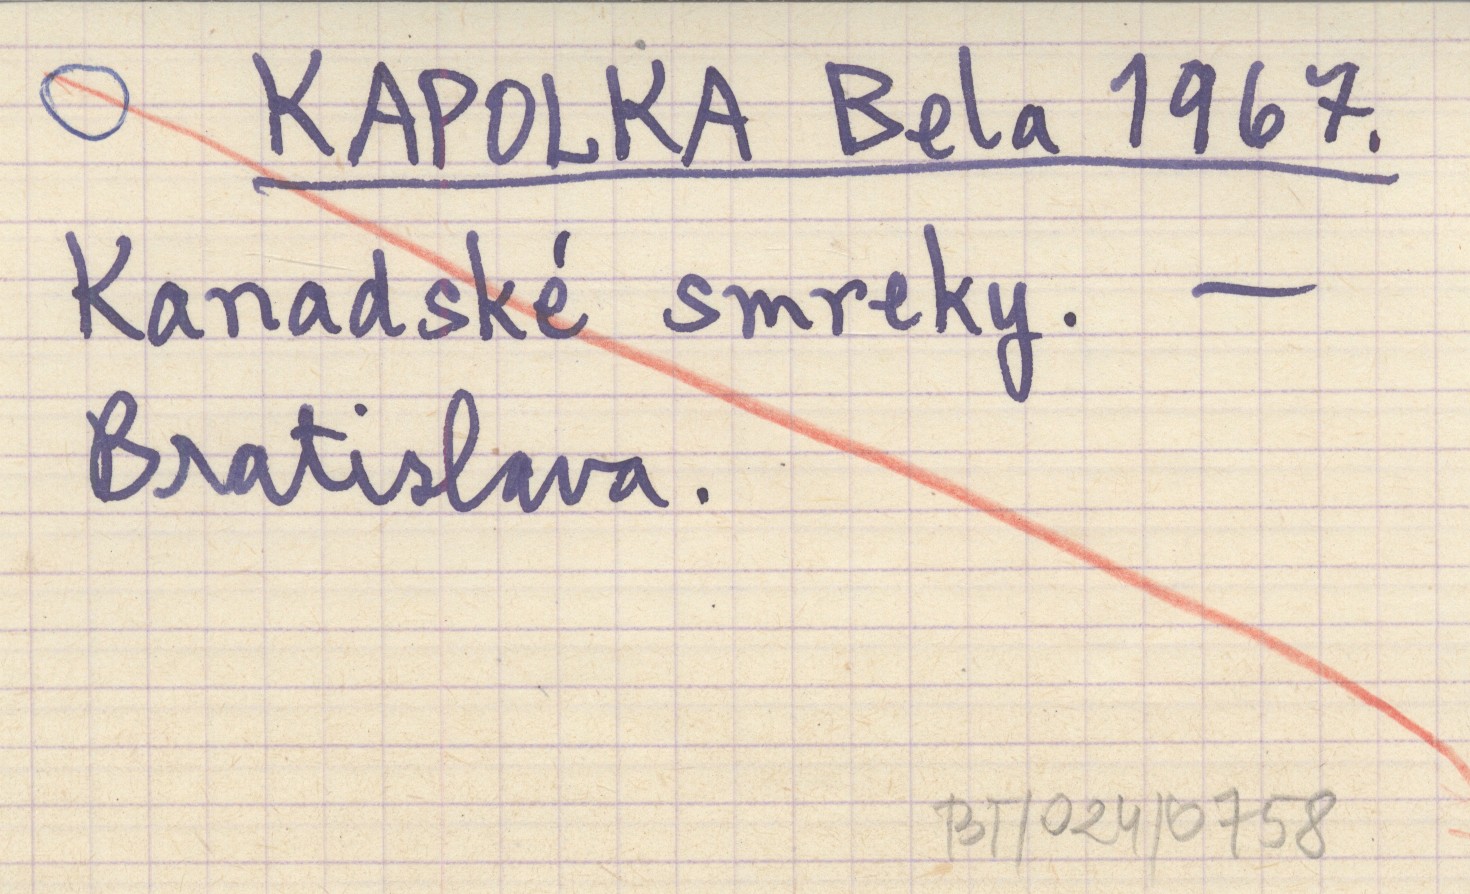 KAPOLKA Bela 1967.
Kanadské smreky. —
Bratislava.
BT/024/0758